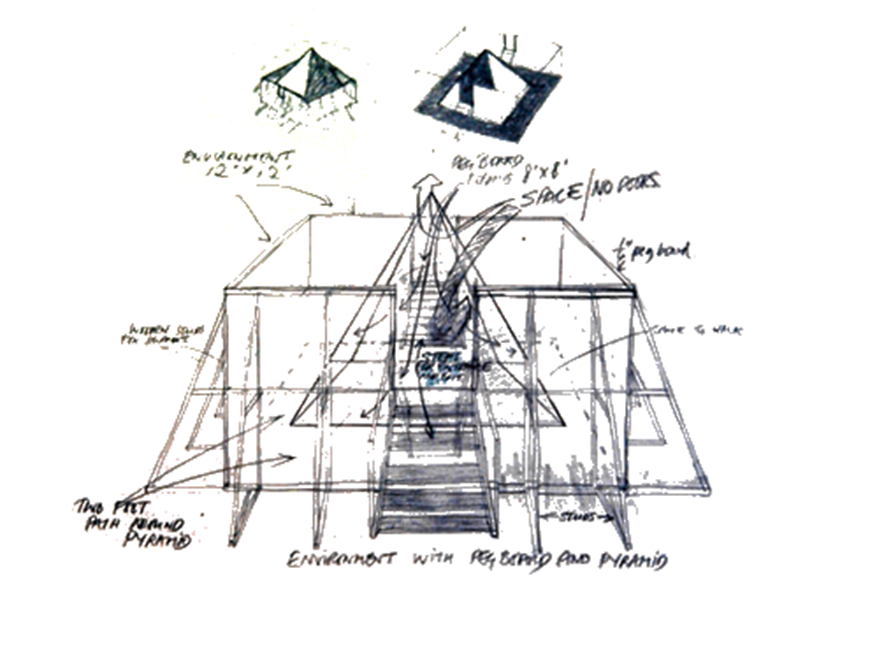 ENVIRNMENT
12' x 12'
PEG BOARD
8'x8'
SPACE/NO DOORS
peg board
WOODEN STUDS
SPACE TO WALK
STEPS
TWO FEET
PATH BEHIND
PYRAMID
STUDS
ENVIRONMENT WITH PEG BOARD AND PYRAMID